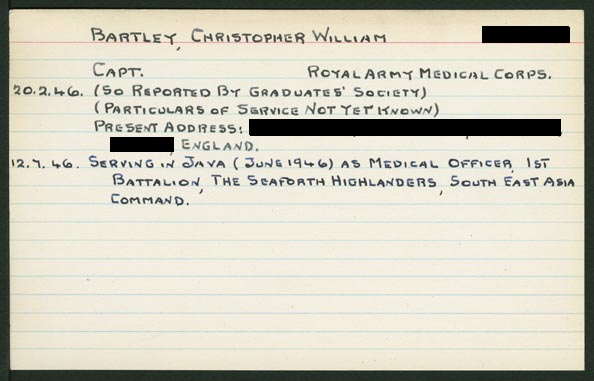 BARTLEY, CHRISTOPHER WILLIAM
CAPT. ROYAL ARMY MEDICAL CORPS.
20.2.46. (SO REPORTED BY GRADUATES' SOCIETY)
(PARTICULARS OF SERVICE NOT YET KNOWN)
PRESENT ADDRESS:
, ENGLAND.
12.7.46. SERVING IN JAVA (JUNE 1946) AS MEDICAL OFFICER, 1ST
BATTALION, THE SEAFORTH HIGHLANDERS, SOUTH EAST ASIA
COMMAND.